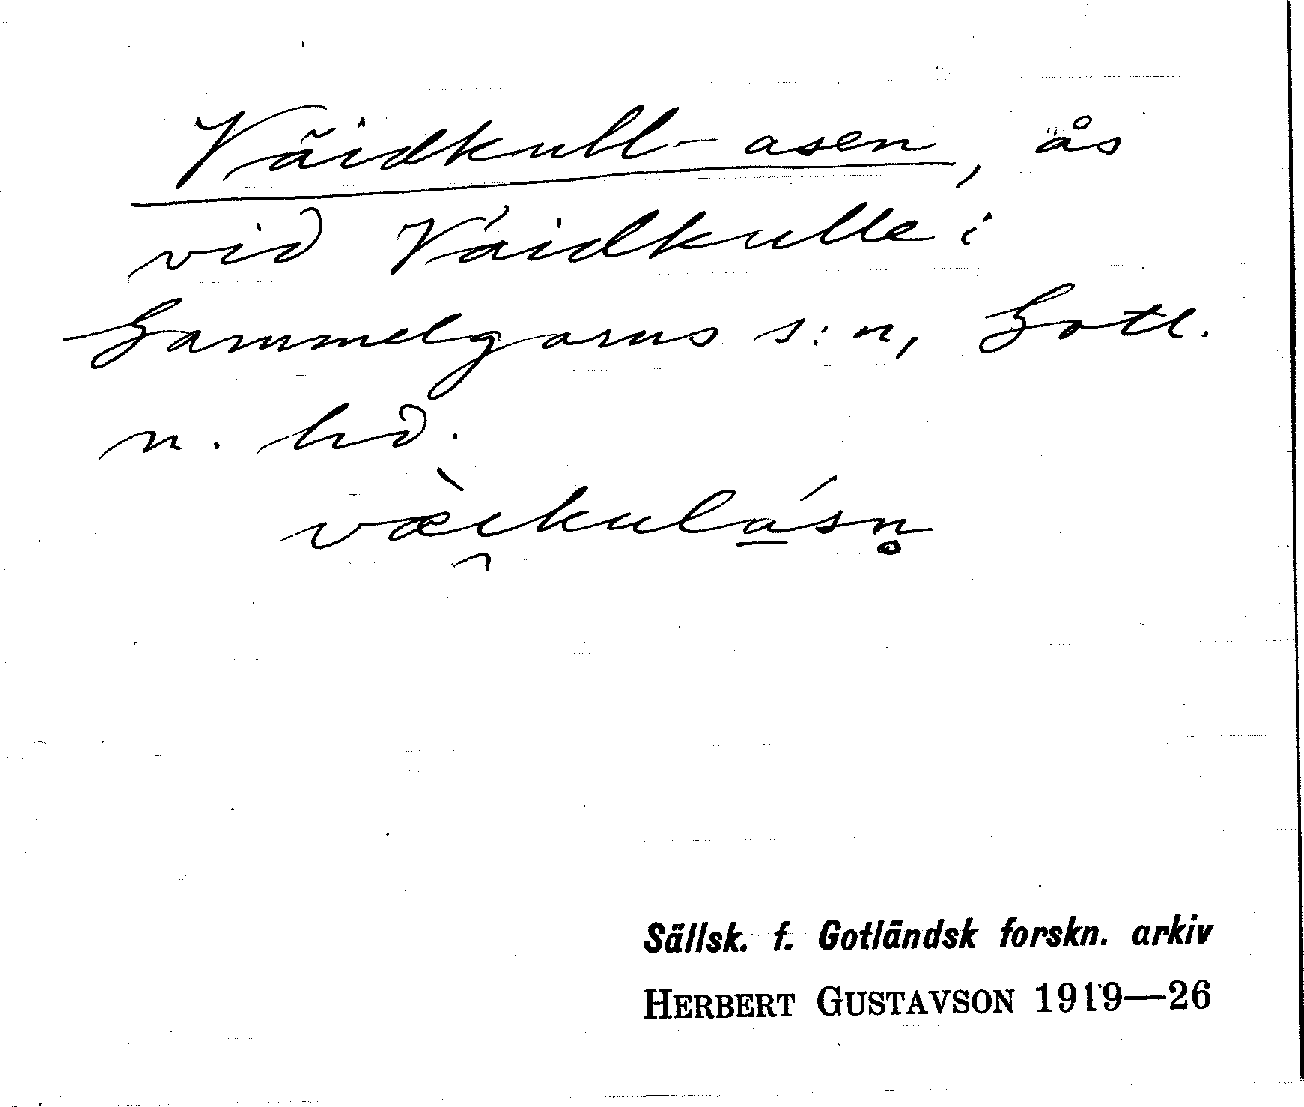 Väidkull-asen, ås
vid Väidkulle i
Gammelgarns s:n, Gotl.
n. hd.
væ̀i̯kulá̲sn̥
Sällsk. f. Gotländsk forskn. arkiv
HERBERT GUSTAVSON 1919—26